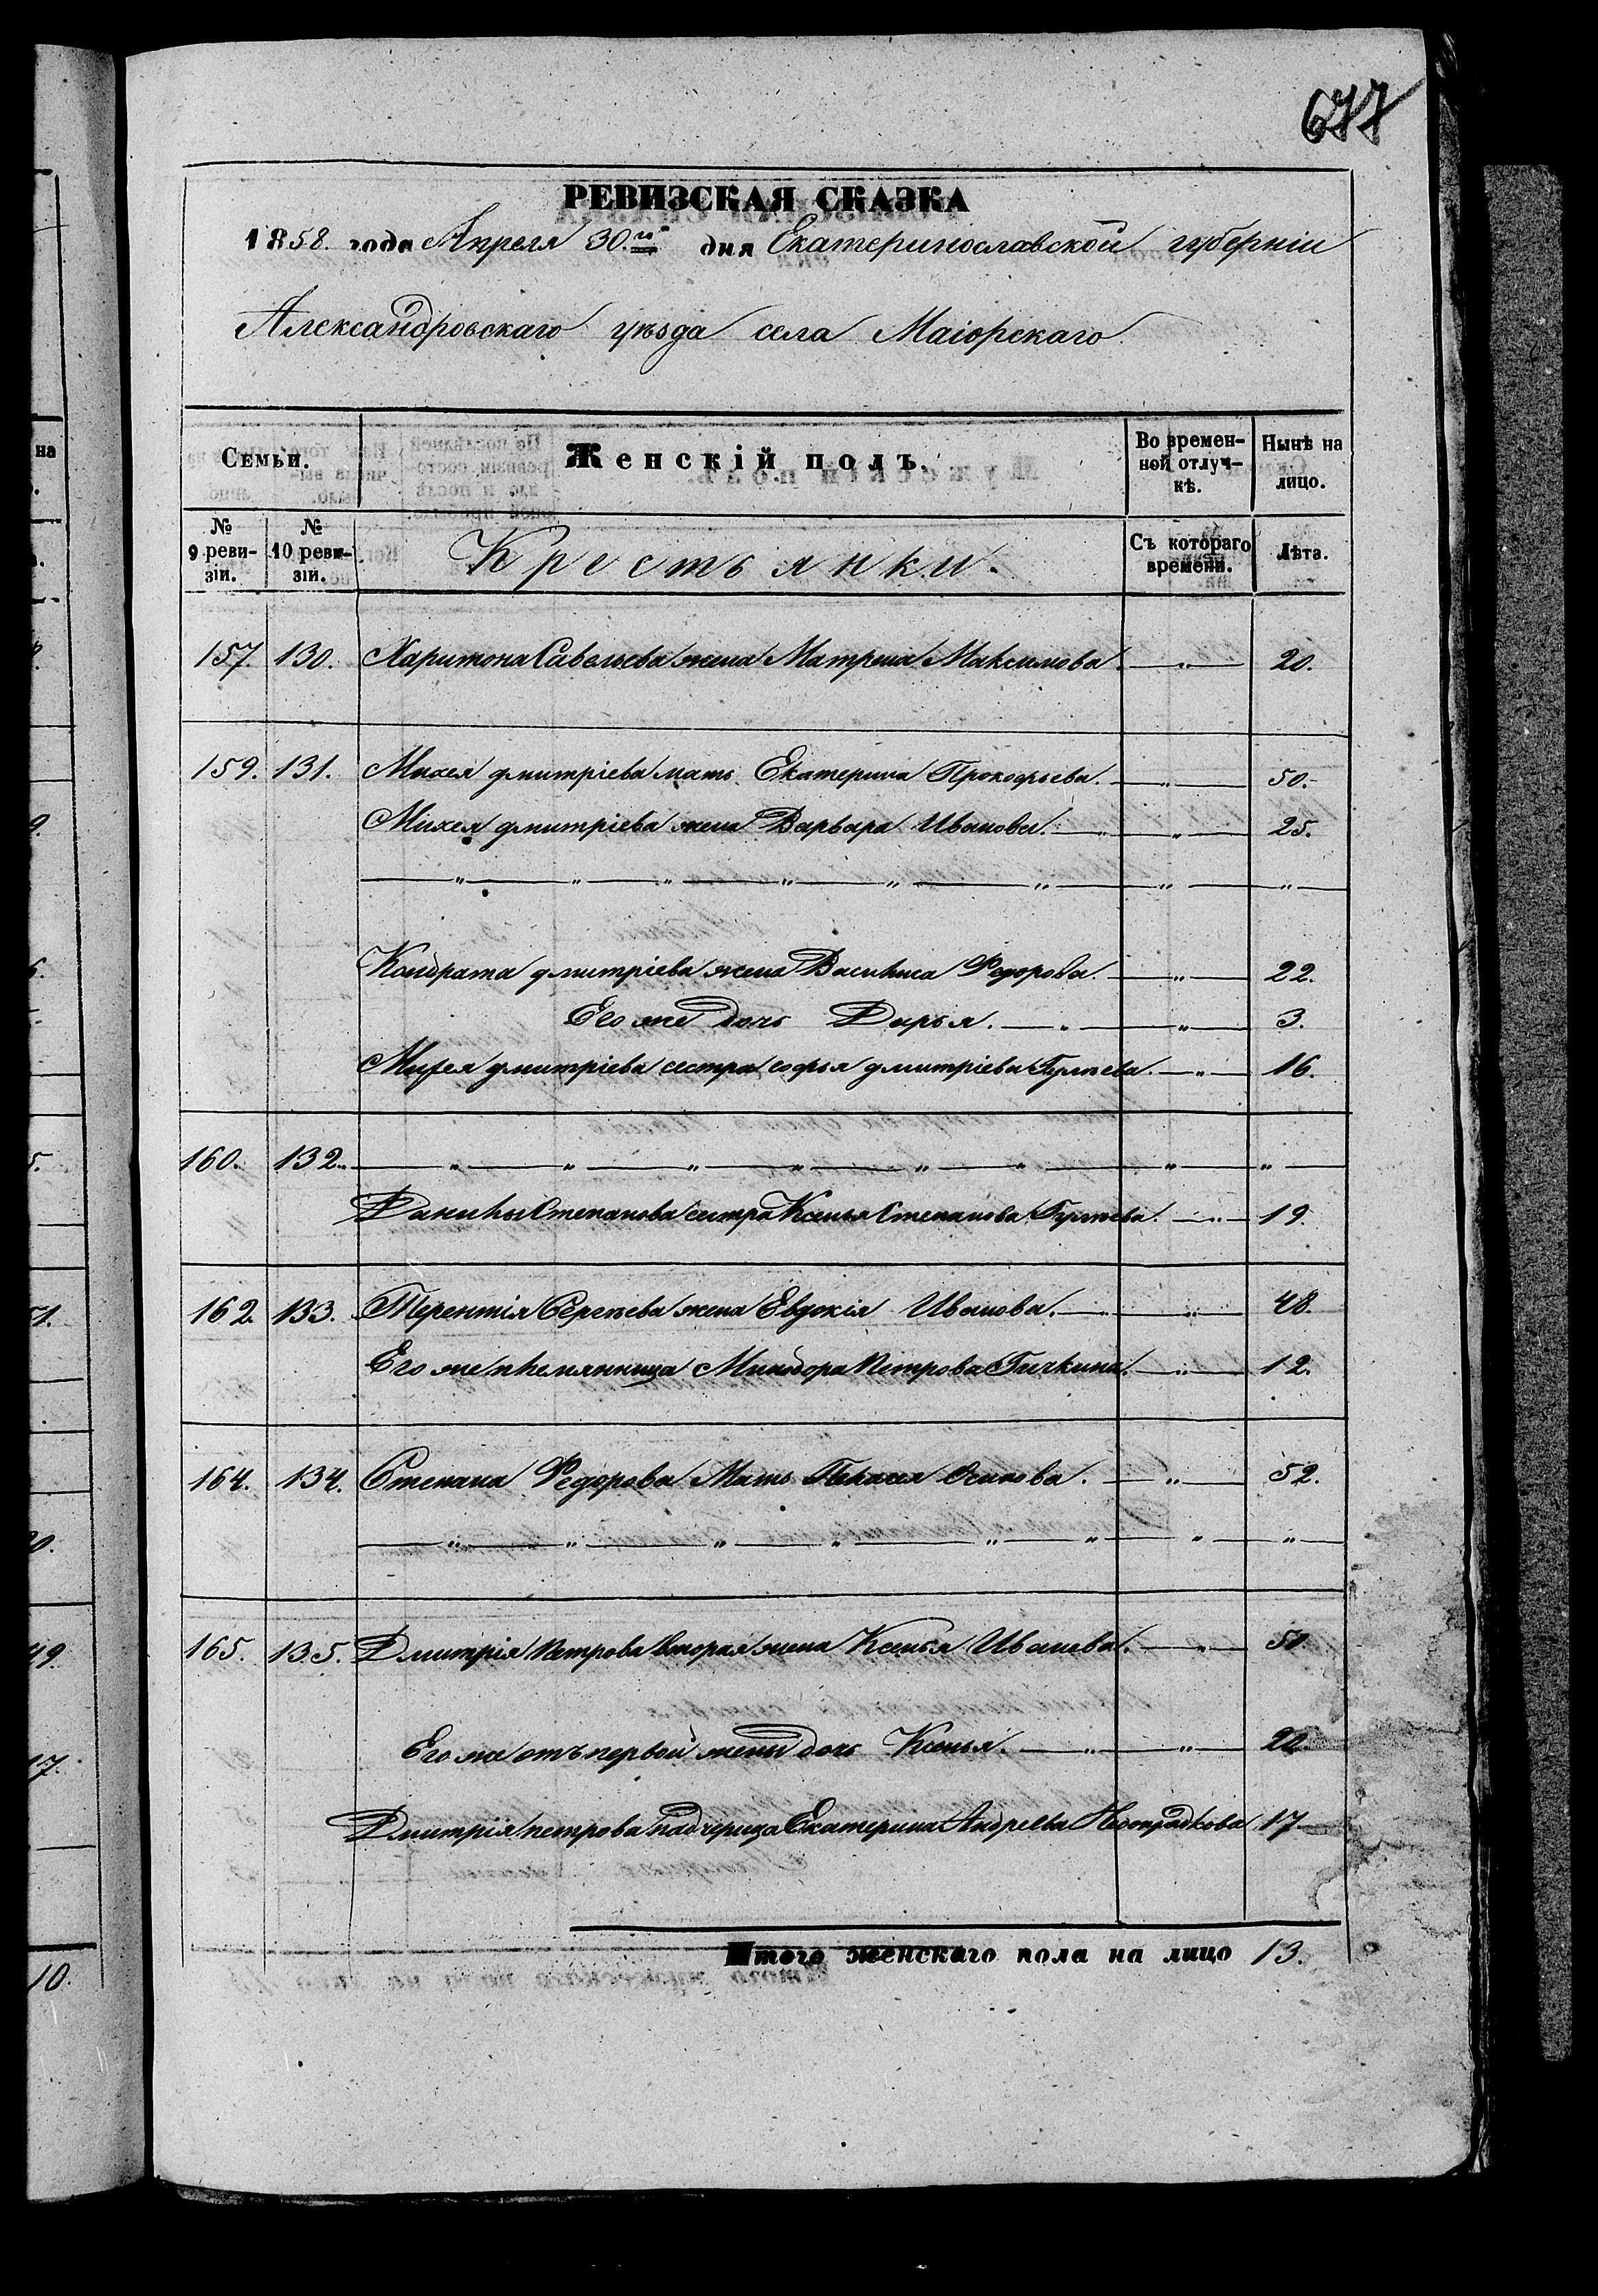 677
РЕВИЗСКАЯ СКАЗКА
1858. года Апреля 30.го дня Екатеринославской губерніи
Александровскаго уѣзда села Маіорскаго.
Семьи. Женскій полъ. Во времен- Нынѣ на
ной отлуч- лицо.
кѣ.
№ № Крестьянки. Съ котораго Лѣта.
9 реви- 10 реви- времени.
зіи. зіи.
157. 130. Харитона Савельева жена Матрена Максимова. — „ — 20.
159. 131. Михея дмитріева мать Екатерина Прокофьева. — „ — 50.
Михея дмитріева жена Варвара Иванова. — „ — „ — 25.
— „ — „ — „ — „ — „ — „ — „ — „ —
Кондрата дмитріева жена Василиса Федорова. — „ — 22.
Его же дочь Дарья. — „ — „ — 3.
Михея дмитріева сестра софья дмитріева — „ — 16.
160. 132. — „ — „ — „ — „ — „ — „ — „ — „ —
Данилы Степанова сестра Ксенья Степанова — „ — 19.
162. 133. Терентія Сергѣева жена Евдокія Иванова. — „ — „ — 48.
Его же племянница Минодора Петрова Гичкина. — „ — 12.
164. 134. Степана Федорова Мать Пелагея Осипова. — „ — 52.
— „ — „ — „ — „ — „ — „ — „ — „ —
165. 135. Дмитрія Петрова вторая жена Ксенья Иванова. — „ — 50.
Его же отъ первой жены дочь Ксенья. — „ — „ — 20.
Дмитрія петрова падчерица Екатерина Андреева 17.
Итого женскаго пола на лицо 13.